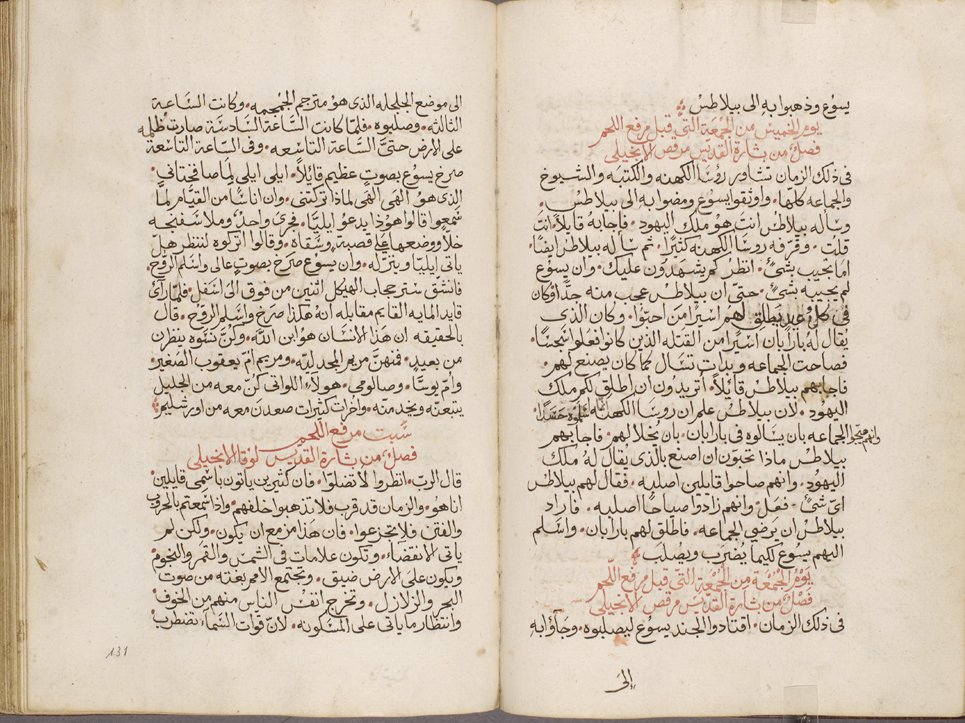 يسوع وذهبوا به الى بيلاطس
يوم الخميس من الجمعة التى قبل مرفع اللحم
فصل من بشارة القديس مرقص الانجيلى
فى ذلك الزمان تشاور روسا الكهنه والكتبه والشيوخ
والجماعه كلها. واوثقوا يسوع ومضوا به الى بيلاطس.
وساله بيلاطس انت هو ملك اليهود. فاجابه قايلا انت
قلت. وقرفه روسا الكهنة كثيرا. ثم ساله بيلاطس ايضا.
اما تجيب بشئ. انظر كم يشهدون عليك. وان يسوع
لم يجيبه بشئ. حتى ان بيلاطس عجب منه جدا وكان
فى كل عيد يطلق لهم اسيرا من احبوا. وكان الذى
يقال له بارابان اسيرا من القتله الذين كانوا فعلوا
فصاحت الجماعه وبدات تسال كما كان يصنع لهم.
فاجابهم بيلاطس قايلا. اتريدون ان اطلق لكم ملك
اليهود. لان بيلاطس علم ان روسا الكهنة اسلموه حسدا.
وانهم الجماعه بان يسالوه فى بارابان. بان يخلا لهم. فاجابهم
بيلاطس ماذا تحبون ان اصنع بالذى يقال له ملك
اليهود. وانهم صاحوا قايلين اصلبه. فقال لهم بيلاطس
اى شئ. فعل. وانهم زادوا صياحا اصلبه. فاراد
بيلاطس ان يرضى الجماعه. فاطلق لهم بارابان. واسلم
اليهم يسوع لكيما يضرب ويصلب
يوم الجمعة من الجمعة التى قبل مرفع اللحم
فصل من بشارة القديس مرقص الانجيلى
فى ذلك الزمان. اقتادوا الجند يسوع ليصلبوه. وجآوا به
إلى
الى موضع الجلجله الذى هو مترجم الجمجمه. وكانت الساعة
الثالثه. وصلبوه. فلما كانت الساعة السادسة صارت ظلمه
على الارض حتى الساعة التاسعه. وفى الساعة التاسعة
صرخ يسوع بصوت عظيم قايلا. ايلى ايلى لما صافختانى.
الذى هو الهى الهى لماذا تركتنى. وان اناسا من القيام لما
سمعوا قالوا هوذا يدعو ايليا. فجرى واحد. وملا سفنجه
خلا ووضعها على قصبة. وسقاه. وقالوا اتركوه لننظر هل
ياتى ايليا وينزله. وان يسوع صرخ بصوت عالى واسلم الروح.
فانشق ستر حجاب الهيكل اثنين من فوق الى اسفل. فلما رآى
قايد المايه القايم مقابله انه هكذا صرخ واسلم الروح. قال
بالحقيقه ان هذا الانسان هو ابن الله. وكن نسوه ينظرن
من بعيد. فمنهن مريم المجدليه. ومريم ام يعقوب الصغير.
وام يوسا. وصالومى. هولاء اللواتى كن معه من الجليل
يتبعنه ويخدمنه. واخرات كثيرات صعدن معه من اورشليم
سبت مرفع اللحم
فصل من بشارة القديس لوقا الانجيلى
قال الرب. انظروا لا تضلوا. فان كثيرين ياتون باسمى قايلين
انا هو. والزمان قد قرب فلا تذهبوا خلفهم. واذا سمعتم بالحروب
والفتن فلا تجزعوا. فان هذا مزمع ان يكون. ولكن لم
ياتى الانقضاء. وتكون علامات فى الشمس والقمر والنجوم
ويكون على الارض ضيق. وتجتمع الامم بغته من صوت
البحر والزلازل. وتخرج انفس الناس منهم من الخوف
وانتظار ما ياتى على المسكونه. لان قوات السماء تضطرب
131